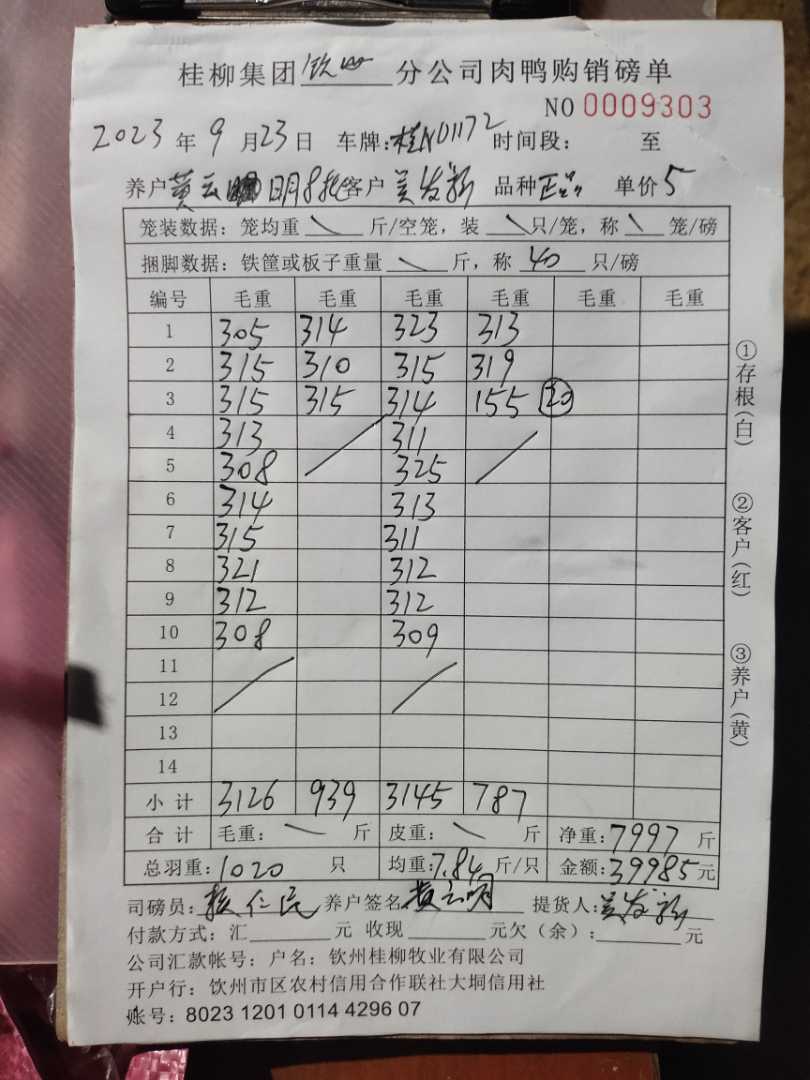 桂柳集团钦州分公司肉鸭购销磅单
NO 0009303
2023年9月23日 车牌:桂N01172 时间段: 至
养户黄云明8批客户吴发新 品种正品 单价5
笼装数据:笼均重\斤/空笼,装\只/笼,称\笼/磅
捆脚数据:铁筐或板子重量\斤,称40只/磅
编号 毛重 毛重 毛重 毛重 毛重 毛重
1 305 314 323 313
2 315 310 315 319
3 315 315 314 155 20
4 313 311
5 308 325
6 314 313
7 315 311
8 321 312
9 312 312
10 308 309
11
12
13
14
小计 3126 939 3145 787
合计 毛重:\斤 皮重:\斤 净重:7997斤
总羽重:1020只 均重:7.84斤/只 金额:39985元
司磅员: 养户签名黄云明 提货人:吴发新
付款方式:汇 元 收现 元欠(余): 元
公司汇款帐号:户名:钦州桂柳牧业有限公司
开户行:钦州市区农村信用合作联社大垌信用社
账号:8023 1201 0114 4296 07
①存根(白)
②客户(红)
③养户(黄)